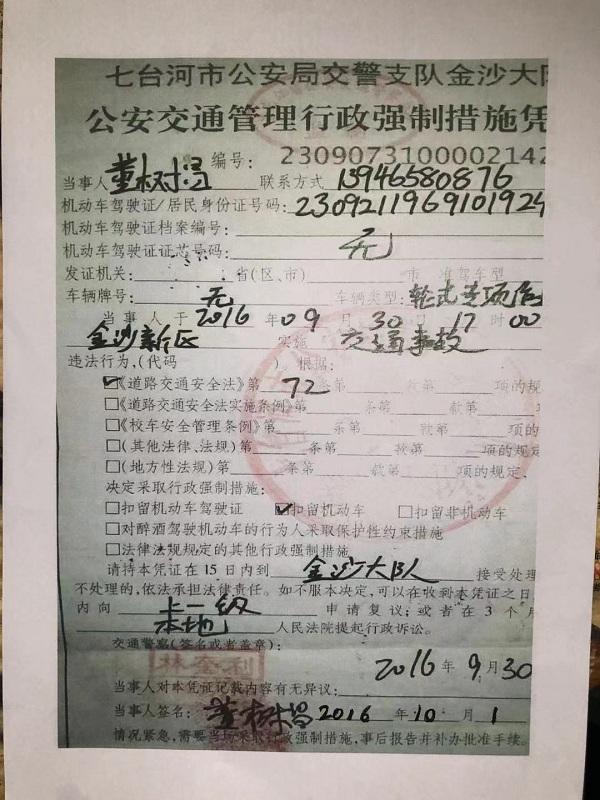 七台河市公安局交警支队金沙大
公安交通管理行政强制措施凭
编号:2309073100002142
当事人 董树 联系方式 13946580876
机动车驾驶证/居民身份证号码:2309211969101924
机动车驾驶证档案编号:
机动车驾驶证证芯号码: 无
发证机关: 省(区、市) 市 准驾车型
车辆牌号: 无 车辆类型: 轮式专项
当事人于 2016 年 09 月 30 日 17 时 00
金沙新区 实施 交通事故
违法行为,(代码 ) 根据:
☑《道路交通安全法》第 72 条第 款第 项的规
□《道路交通安全法实施条例》第 条第 款第 项
□《校车安全管理条例》第 条第 款第 项的
□(其他法律、法规)第 条第 款第 项的规定
□(地方性法规)第 条第 款第 项的规定、
决定采取行政强制措施:
□扣留机动车驾驶证 ☑扣留机动车 □扣留非机动车
□对醉酒驾驶机动车的行为人采取保护性约束措施
□法律法规规定的其他行政强制措施
请持本凭证在15日内到 金沙大队 接受处理
不处理的,依法承担法律责任。如不服本决定,可以在收到本凭证之日
内向 上一级 申请复议;或者在3个月
本地 人民法院提起行政诉讼。
交通警察(签名或者盖章):
2016 年 9 月 30
当事人对本凭证记载内容有无异议:
当事人签名: 董树 2016 年 10 月 1
情况紧急,需要当场采取行政强制措施,事后报告并补办批准手续。